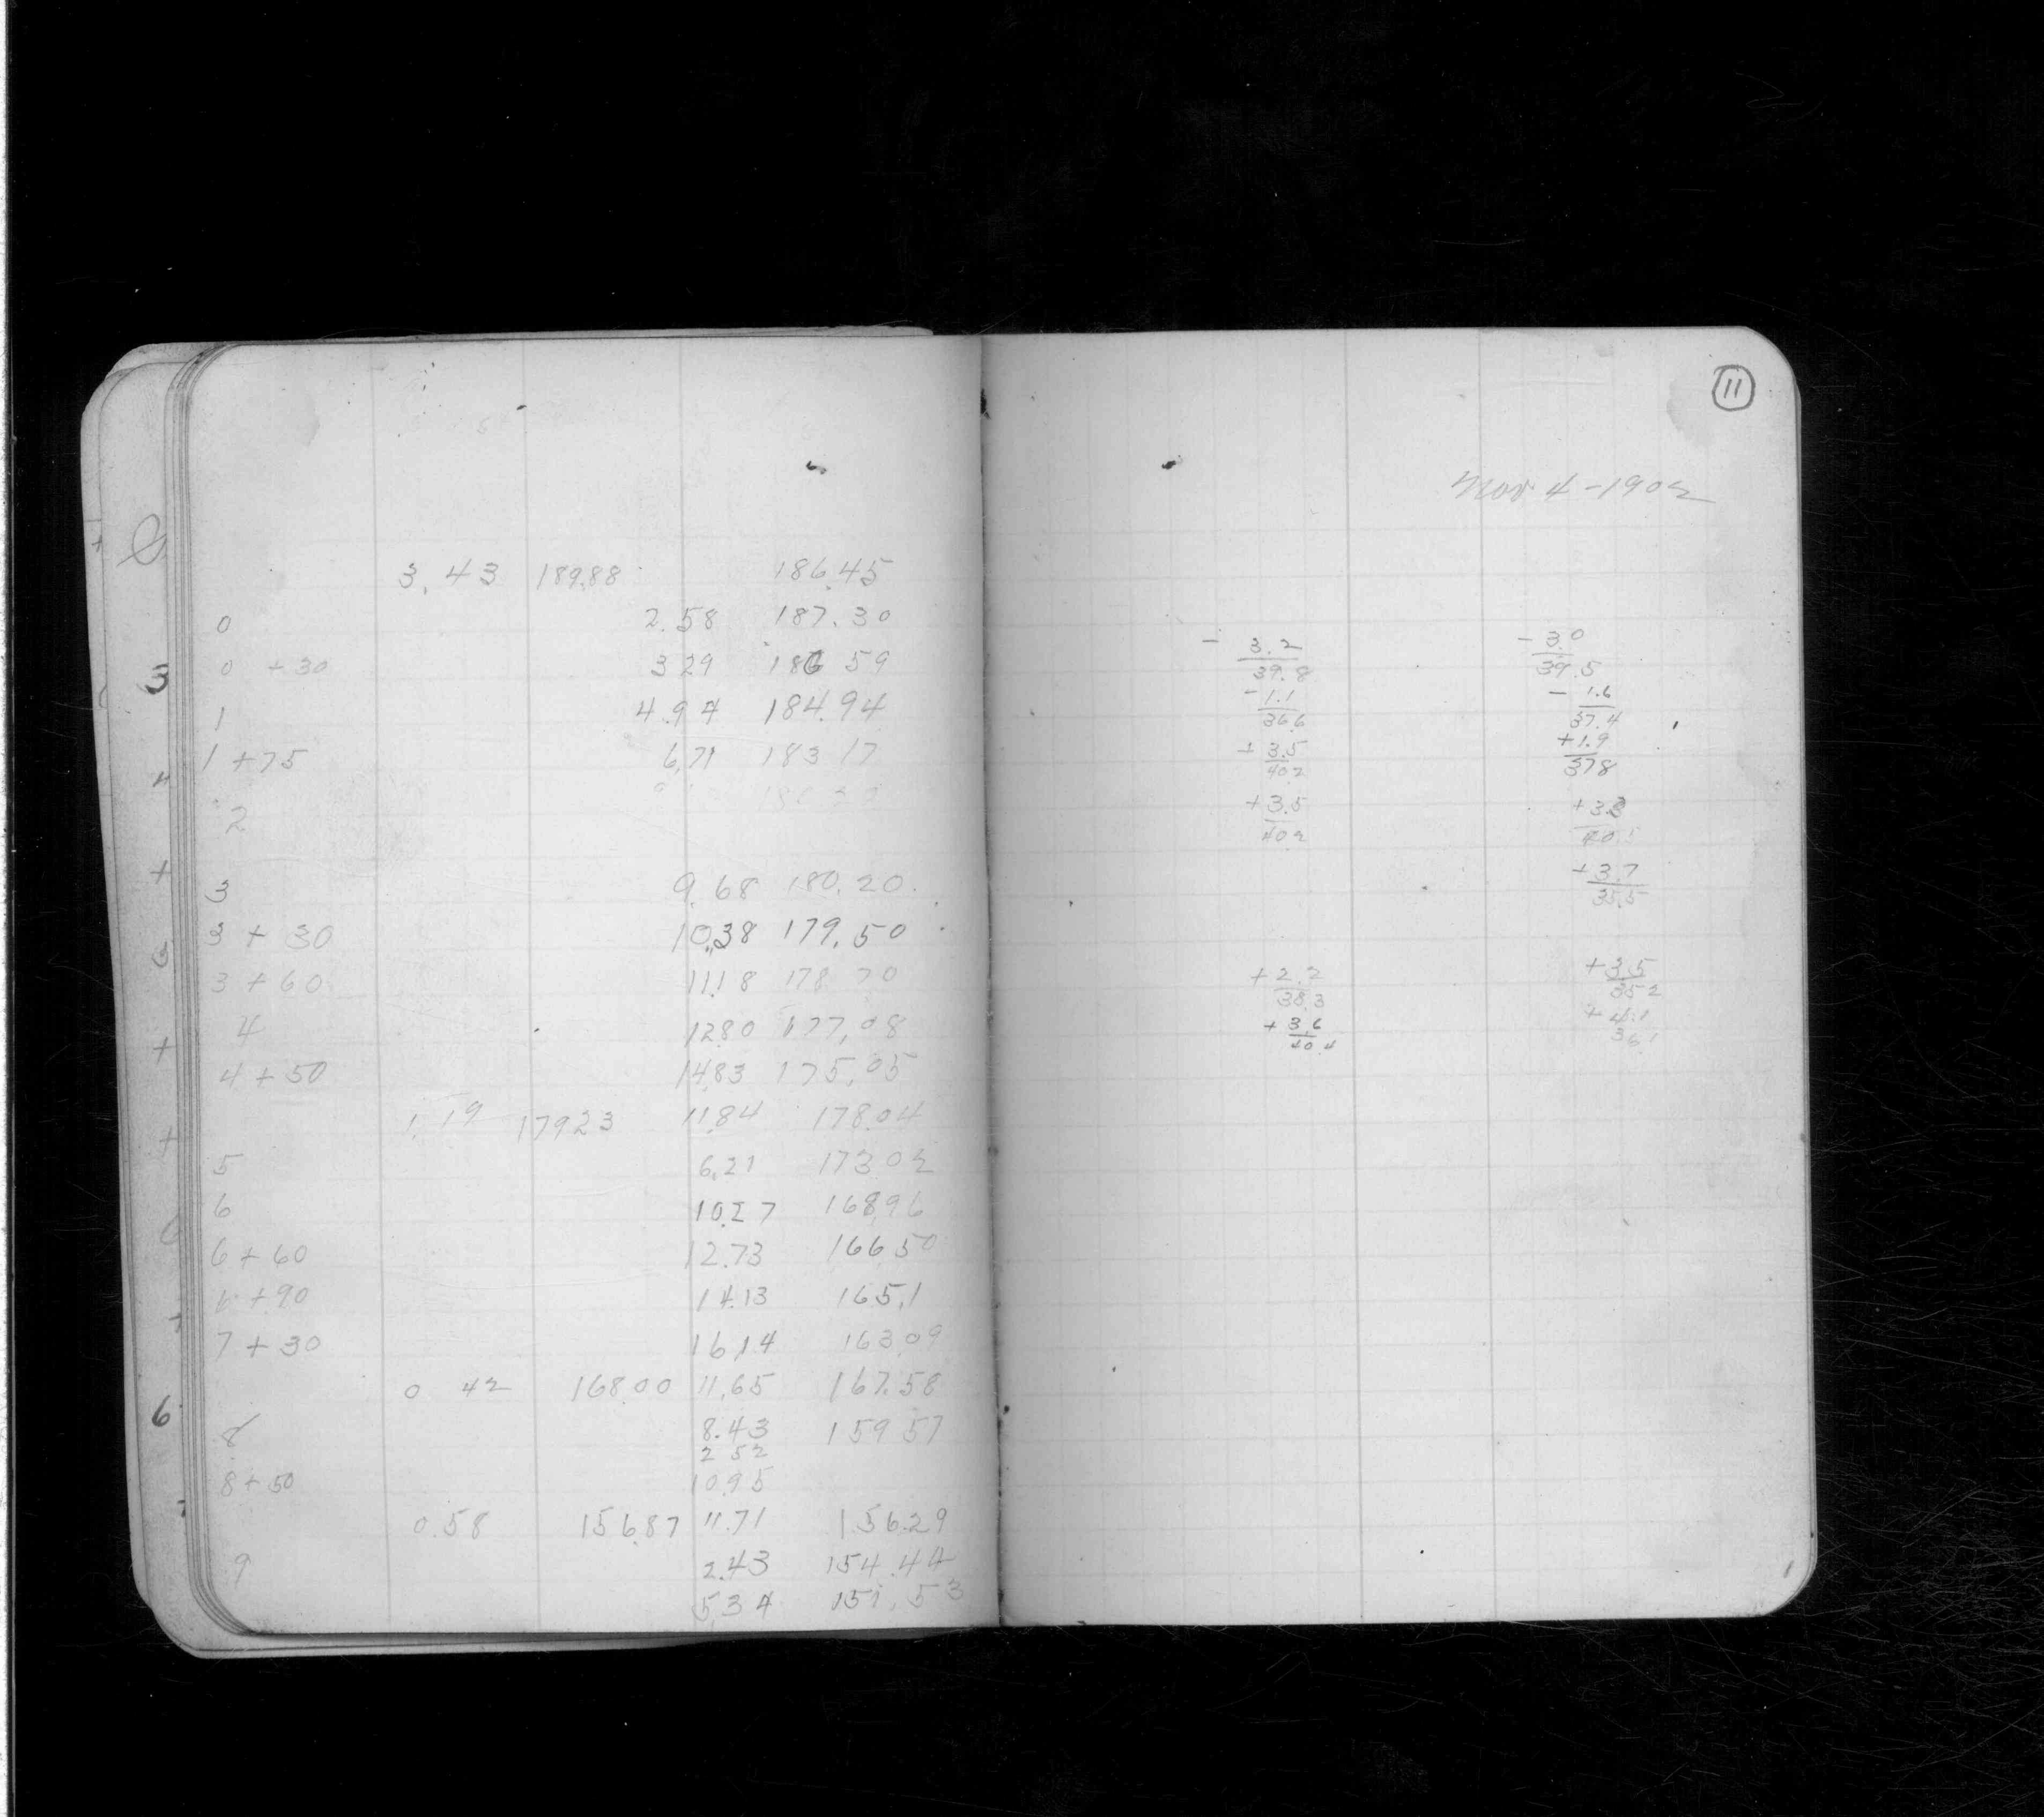 3.43 189.88 186.45
0 2.58 187.30
0 +30 3 29 186 59
1 4.94 184.94
1 +75 6.71 183 17
2
3 9.68 180.20
3 + 30 10.38 179.50
3 + 60 11.18 178 70
4 12.80 177.08
4 + 50 14.83 175.05
1.19 179 23 11.84 178.04
5 6.21 173 02
6 10.27 168.96
6 + 60 12.73 166.50
6 + 90 14.13 165.1
7 + 30 16.14 163.09
0 42 168 00 11.65 167.58
8 8.43 159 57
2 52
8 + 50 10.95
0.58 156.87 11.71 156.29
9 2.43 154.44
5.34 151.53
11
Nov 4 - 1902
- 3.2 - 3.0
39.8 39.5
- 1.1 - 1.6
36.6 37.4
+ 3.5 + 1.9
40.2 37 8
+ 3.5 + 3.8
40 2 40
+ 3.7
35.5
+ 2.2 + 3.5
38.3 35 2
+ 3.6 + 4.1
40.4 36.1